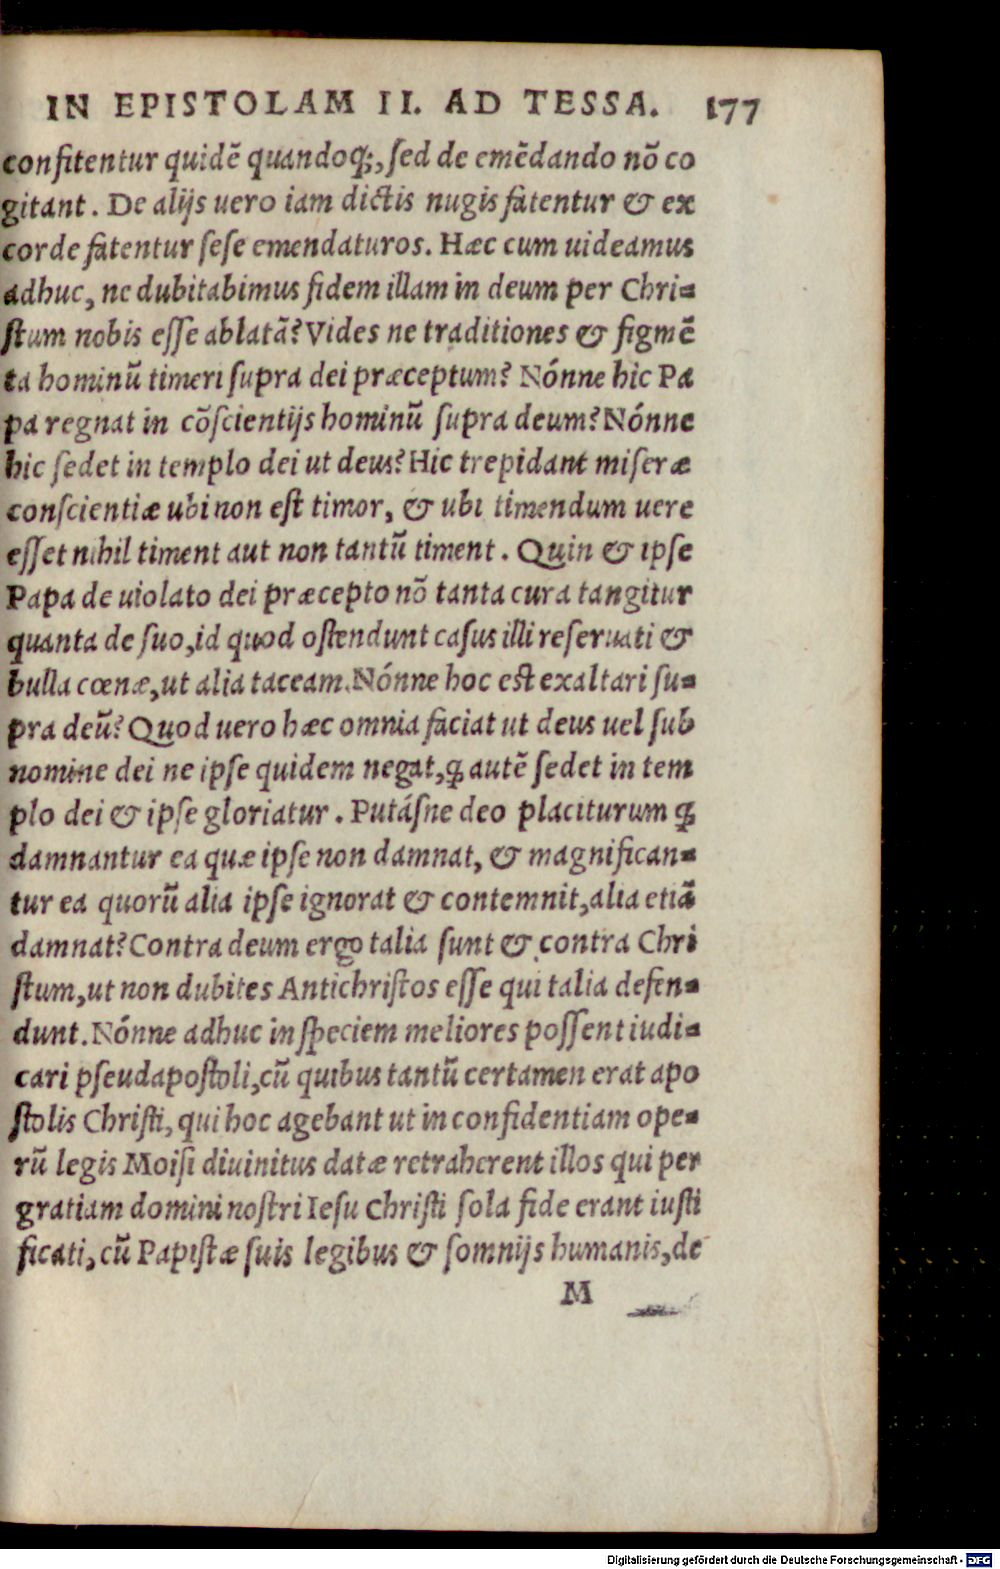 IN EPISTOLAM II. AD TESSA. 177
confitentur quidē quandoq;, sed de emēdando nō co
gitant. De alijs uero iam dictis nugis fatentur & ex
corde fatentur sese emendaturos. Hæc cum uideamus
adhuc, ne dubitabimus fidem illam in deum per Chri=
stum nobis esse ablatā? Vides ne traditiones & figmē
ta hominū timeri supra dei præceptum? Nónne hic Pa
pa regnat in cōscientijs hominū supra deum? Nónne
hic sedet in templo dei ut deus? Hic trepidant miseræ
conscientiæ ubi non est timor, & ubi timendum uere
esset nihil timent aut non tantū timent. Quin & ipse
Papa de uiolato dei præcepto nō tanta cura tangitur
quanta de suo, id quod ostendunt casus illi reseruati &
bulla cœnæ, ut alia taceam. Nónne hoc est exaltari su=
pra deū? Quod uero hæc omnia faciat ut deus uel sub
nomine dei ne ipse quidem negat, ꝙ autē sedet in tem
plo dei & ipse gloriatur. Putásne deo placiturum ꝙ
damnantur ea quæ ipse non damnat, & magnifican=
tur ea quorū alia ipse ignorat & contemnit, alia etiā
damnat? Contra deum ergo talia sunt & contra Chri
stum, ut non dubites Antichristos esse qui talia defen=
dunt. Nónne adhuc in speciem meliores possent iudi=
cari pseudapostoli, cū quibus tantū certamen erat apo
stolis Christi, qui hoc agebant ut in confidentiam ope=
rū legis Moisi diuinitus datæ retraherent illos qui per
gratiam domini nostri Iesu Christi sola fide erant iusti
ficati, cū Papistæ suis legibus & somnijs humanis, de
M
Digitalisierung gefördert durch die Deutsche Forschungsgemeinschaft - DFG